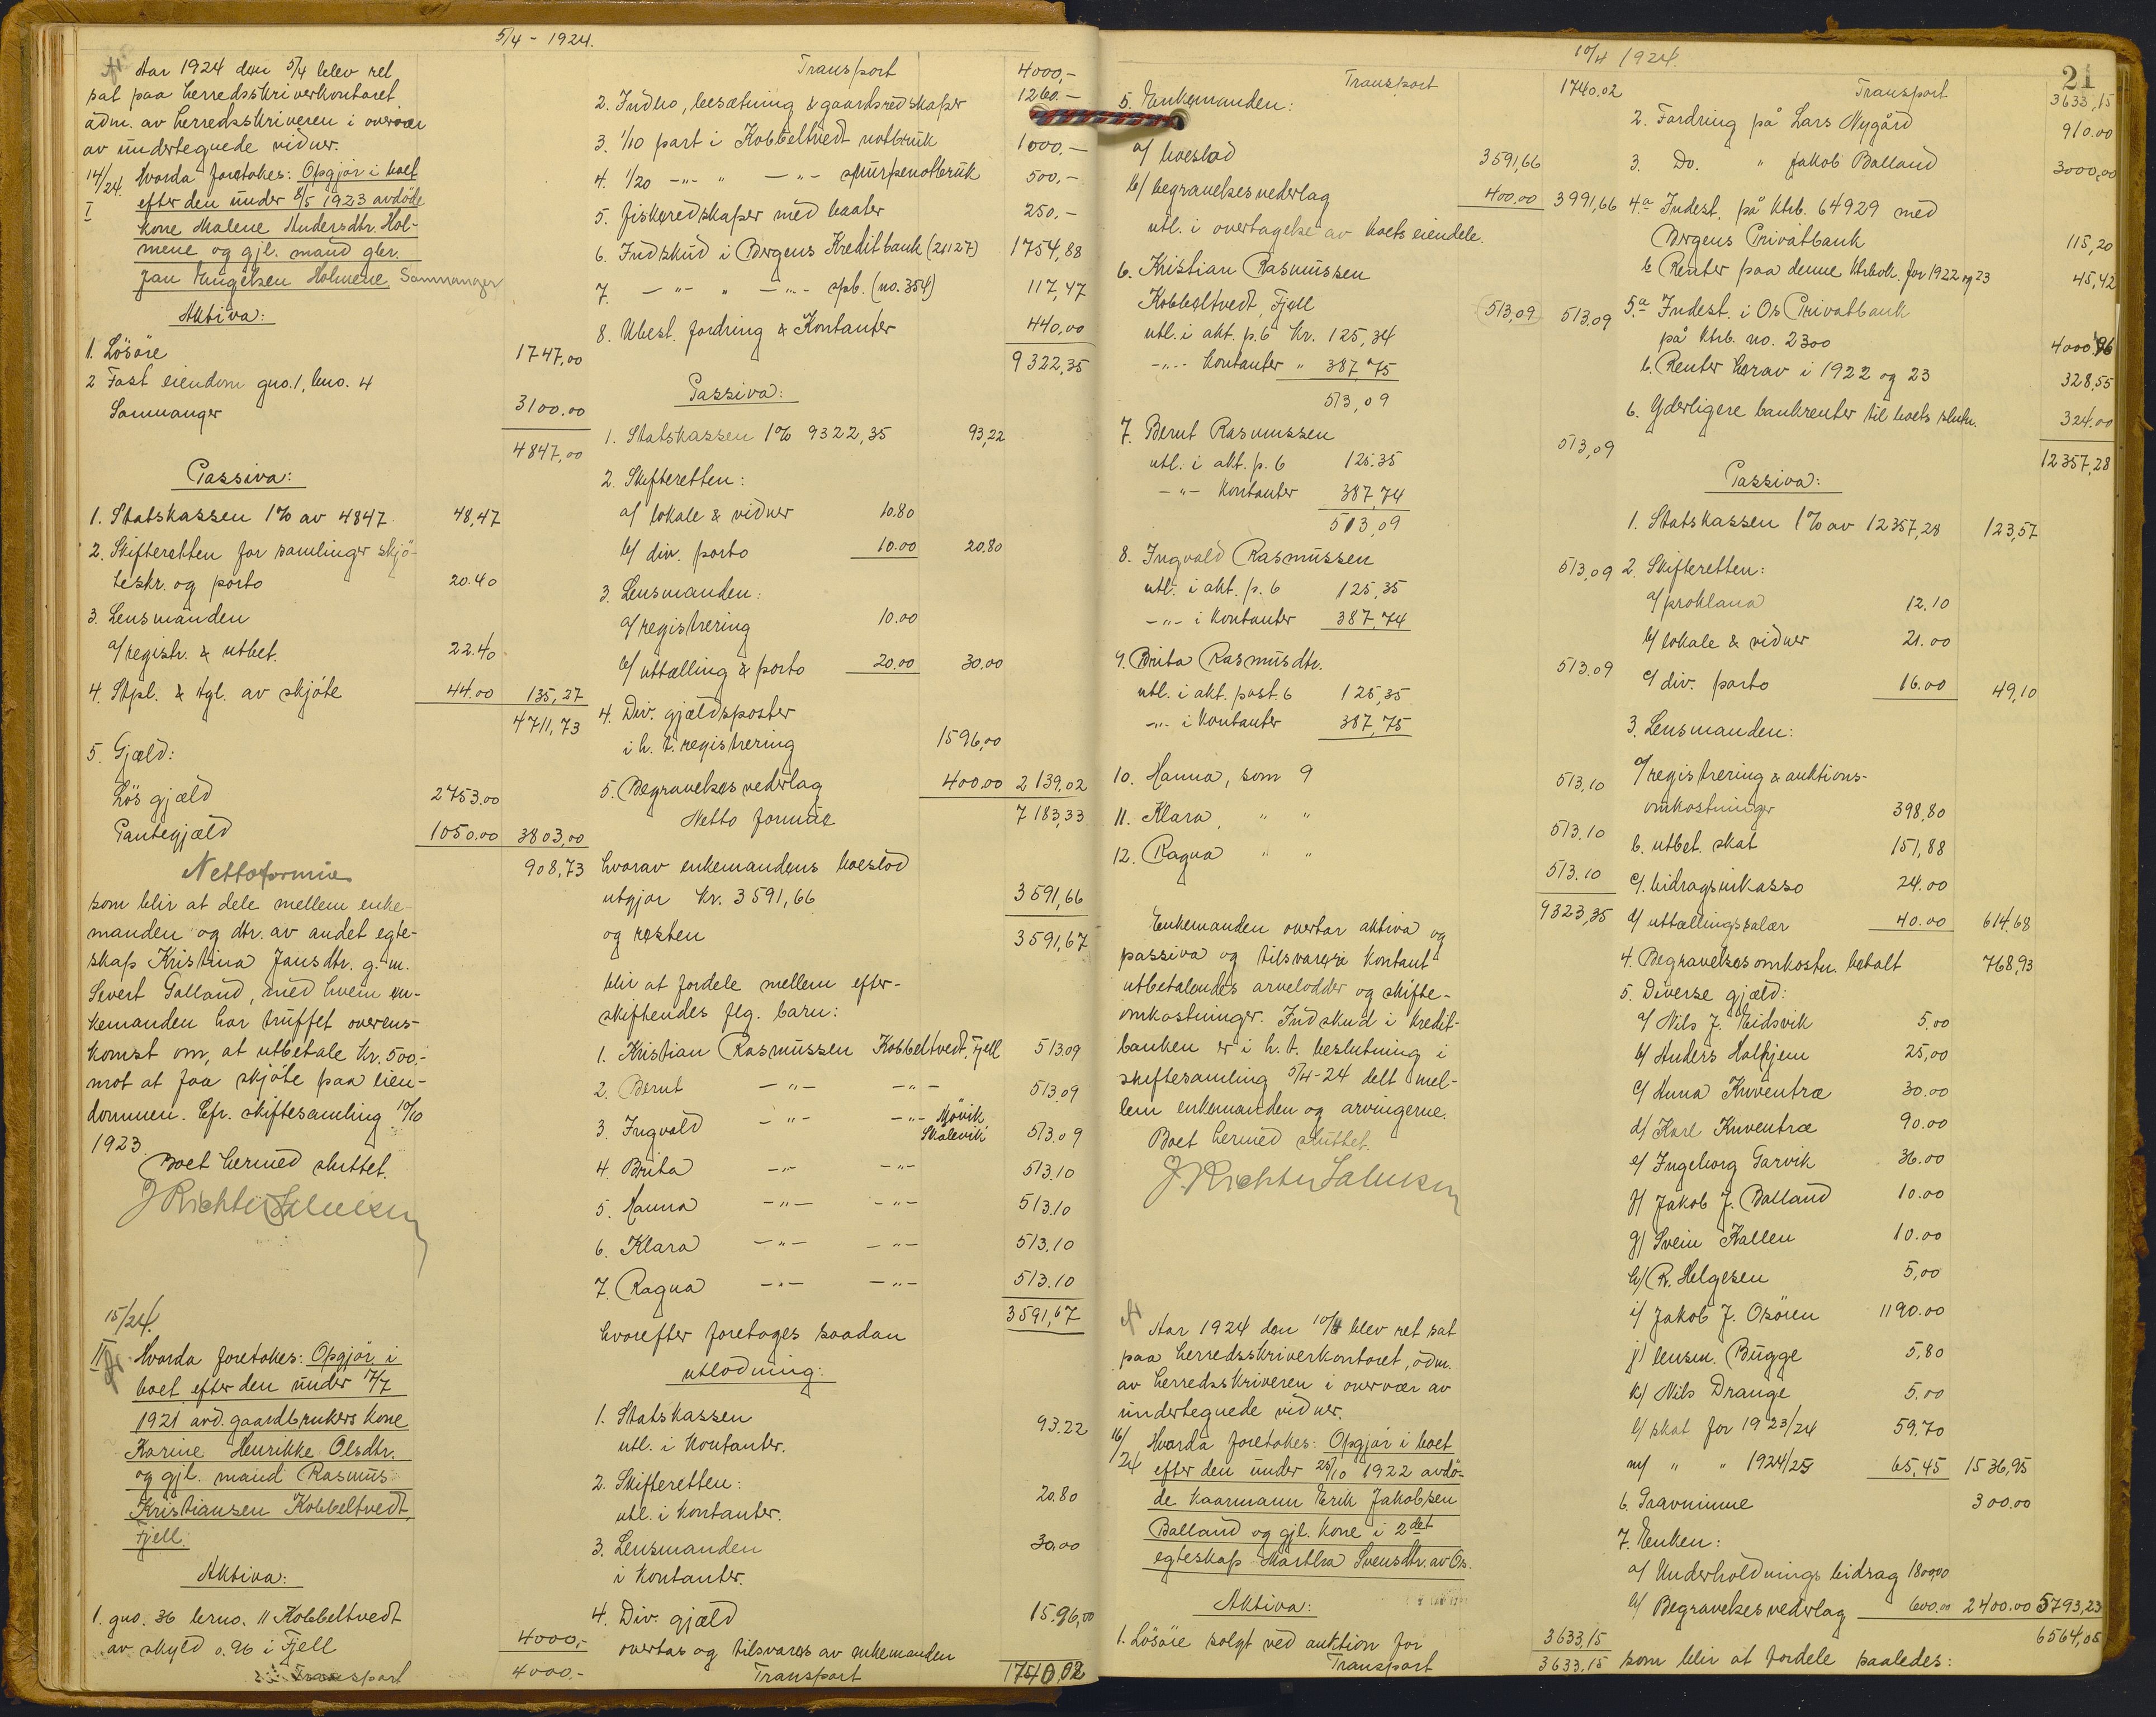 5/4 - 1924.
Aar 1924 den 5/4 blev ret
sat paa herredsskriverkontoret,
adm. av herredsskriveren i overvær
av undertegnede vidner.
14/24. Hvorda foretokes: Opgjør i boet
I efter den under 8/5 1923 avdöde
kone Malene Andersdtr. Hol-
mene og gjl. mand gbr.
Jan Engelsen Holmene, Samnanger
Aktiva:
1. Lösöre 1747,00
2 Fast eiendom gno. 1, bno. 4
Samnanger 3100.00
4847,00
Passiva:
1. Statskassen 1% av 4847. 48,47
2. Skifteretten for samlinger skjö-
teskr. og porto 20.40
3. Lensmanden
a/ registr. & utbet. 22.40
4. Stpl. & tgl. av skjöte 44.00 135,27
4711,73
5. Gjæld:
Lös gjæld 2753.00
Pantegjæld 1050.00 3803,00
Nettoformue 908,73
som blir at dele mellem enke-
manden og dtr. av andet egte-
skap Kristina Jansdtr. g. m.
Severt Galland, med hvem en-
kemanden har truffet overens-
komst om, at utbetale kr. 500.-
mot at faa skjöte paa eien-
dommen. Cfr. skiftesamling 10/10
1923.
Boet hermed sluttet.
15/24.
II Hvorda foretokes: Opgjør i
boet efter den under 17/7
1921 avd. gaardbrukers kone
Karine Henrikke Olsdtr.
og gjl. mand Rasmus
Kristiansen Kobbeltvedt,
Fjell.
Aktiva:
1. gno. 36 brno. 11 Kobbeltvedt
av skyld o.96 i Fjell 4000,-
Transport 4000.-
Transport 4000,-
2. Indbo, besætning & gaardsredskaper 1260.-
3. 1/10 part i Kobbeltvedt notbruk 1000.-
4. 1/20 -"- " -"- spurpenotbruk 500,-
5. fiskeredskaper med baater 250.-
6. Indskud i Bergens Kreditbank (21127) 1754,88
7. -"- " -"- spb. (no. 354) 117,47
8. Ubest. fordring & Kontanter 440,00
9322,35
Passiva:
1. Statskassen 1% 9322,35 93,22
2. Skifteretten:
a/ lokale & vidner 10.80
b/ div. porto 10.00 20.80
3. Lensmanden:
a/ registrering 10.00
b/ uttælling & porto 20.00 30.00
4. Div. gjældsposter
i h. t. registrering 1596,00
5. Begravelsesvederlag 400.00 2139,02
Netto formue 7183,33
hvorav enkemandens boeslod
utgjør kr. 3591,66 3591,66
og resten 3591,67
blir at fordele mellem efter-
skiftendes flg. barn:
1. Kristian Rasmussen Kobbeltvedt, Fjell 513.09
2. Bernt -"- -"- 513.09
3. Ingvald -"- -"- Mjövik Skalevik 513.09
4. Brita -"- -"- 513.10
5. Hanna -"- -"- 513.10
6. Klara -"- -"- 513.10
7. Ragna -"- -"- 513.10
3591,67
hvorefter foretoges saadan
utlodning:
1. Statskassen 93.22
utl. i Kontanter.
2. Skifteretten: 20.80
utl. i kontanter.
3. Lensmanden 30.00
i kontanter.
4. Div. gjæld 1596,00
overtas og tilsvares av enkemanden
Transport 1740.02
10/4 1924.
21
Transport 1740.02
5. Enkemanden:
a/ boeslod 3591,66
b/ begravelsesvederlag 400.00 3991,66
utl. i overtagelse av boets eiendele.
6. Kristian Rasmussen
Kobbeltvedt, Fjell 513,09 513.09
utl. i akt. p. 6 kr. 125,34
-"- kontanter " 387,75
513,09
7. Bernt Rasmussen 513,09
utl. i akt. p. 6 125.35
-"- kontanter 387,74
513,09
8. Ingvald Rasmussen 513,09
utl. i akt. p. 6 125,35
-"- i kontanter 387,74
9. Brita Rasmusdtr. 513.09
utl. i akt. post. 6 125,35
-"- i kontanter 387,75
10. Hanna, som 9 513,10
11. Klara, " " 513.10
12. Ragna " " 513.10
9323,35
Enkemanden overtar aktiva og
passiva og tilsvarer i kontant
utbetalendes arvelodder og skifte-
omkostninger. Indskud i kredit-
banken er i h. t. beslutning i
skiftesamling 5/4-24 delt mel-
lem enkemanden og arvingerne.
Boet hermed sluttet.
Aar 1924 den 10/4 blev ret sat
paa herredsskriverkontoret, adm.
av herredsskriveren i overvær av
undertegnede vidner.
16/24 Hvorda foretokes: Opgjør i boet
efter den under 25/10 1922 avdö-
de kaarmann Erik Jakobsen
Balland og gjl. kone i 2det
egteskap Martha Svensdtr. av Os.
Aktiva:
1. Lösöre solgt ved auktion for 3633,15
Transport 3633.15
Transport 3633,15
2. Fordring på Lars Nygård 910.00
3. Do. " Jakob Balland 3000,00
4.a Indest. på ktrb. 64929 med
Bergens Privatbank 115,20
b. Renter paa denne ktrbok. for 1922 og 23 45,42
5.a Indest. i Os Privatbank
på ktrb. no. 2300 4000,96
b. Renter herav i 1922 og 23 328,55
6. Yderligere bankrenter til boets slutn. 324.00
12357,28
Passiva:
1. Statskassen 1% av 12357,28 123,57
2. Skifteretten:
a/ proklama 12.10
b/ lokale & vidner 21.00
c/ div. porto 16.00 49,10
3. Lensmanden:
a/ registrering & auktions-
omkostninger 398,80
b. utbet. skat 151,88
c/. bidragsinkasso 24.00
d/ uttællingssalær 40.00 614.68
4. Begravelsesomkostn. betalt 768,93
5. Diverse gjæld:
a/ Nils J. Eidsvik 5,00
b/ Anders Halhjem 25,00
c/ Anna Kuventræ 30.00
d/ Karl Kuventræ 90.00
e/ Ingeborg Tarvik 36.00
f/ Jakob J. Balland 10.00
g/ Svein Hallen 10.00
h/ R. Helgesen 5,00
i/ Jakob J. Osören 1190.00
j/ lensm. Bugge 5,80
k/ Nils Drange 5.00
l/ skat for 1923/24 59.70
m/ " " 1924/25 65,45 1536,95
6. Gravminne 300.00
7. Enken:
a/ Underholdningsbidrag 1800,00
b/ Begravelsesvederlag 600.00 2400.00 5793,23
6564,05
som blir at fordele saaledes: